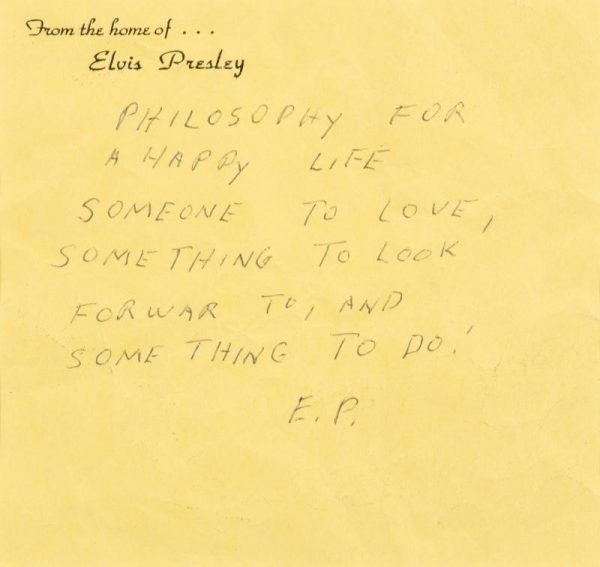 From the home of . . .
Elvis Presley
PHILOSOPHY FOR
A HAPPY LIFE
SOMEONE TO LOVE,
SOMETHING TO LOOK
FORWAR TO, AND
SOME THING TO DO!
E.P.